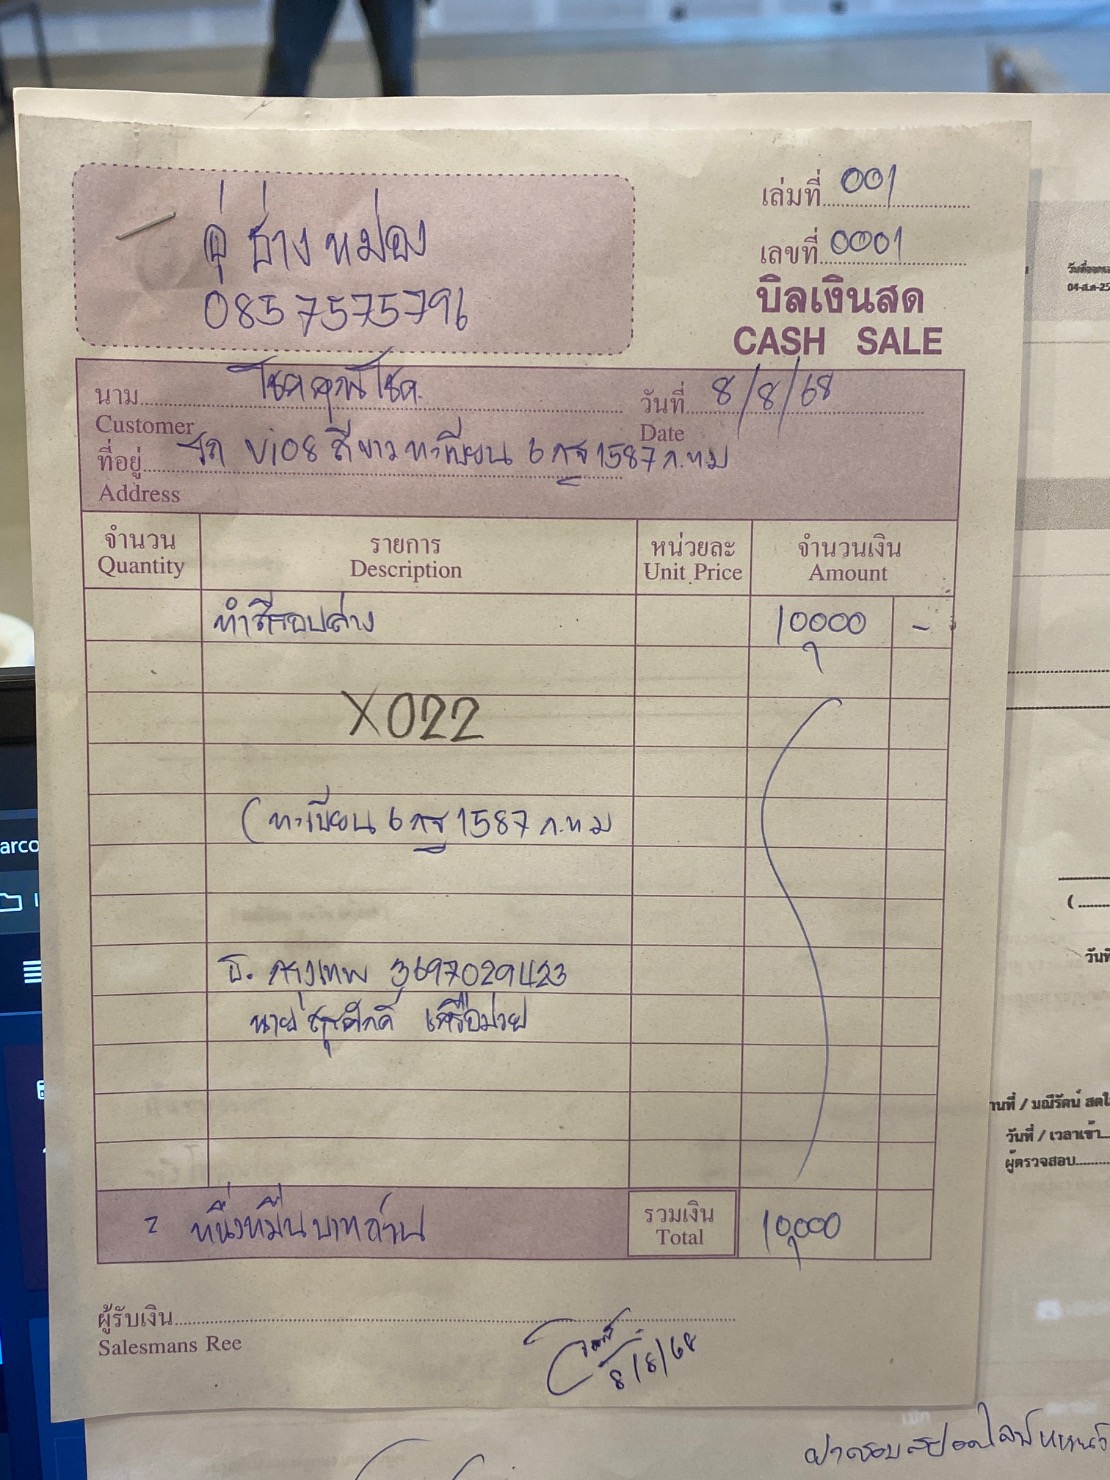 เล่มที่ 001
เลขที่ 0001
อู่ ช่างหม่อง
0857575796
บิลเงินสด
CASH SALE
นาม โชคคูณโชค
Customer
วันที่ 8/8/68
Date
ที่อยู่ รถ VIOS สีขาว ทะเบียน 6 กฐ 1587 ก.ท.ม
Address
จำนวน รายการ หน่วยละ จำนวนเงิน
Quantity Description Unit Price Amount
ทำสีรอบคัน 10,000 -
X022
(ทะเบียน 6 กฐ 1587 ก.ท.ม
ธ. กรุงเทพ 3697029423
นาย สุรศักดิ์
= หนึ่งหมื่นบาทถ้วน รวมเงิน 10,000
Total
ผู้รับเงิน
Salesmans Ree
8/8/68
04-ส.ค-25
arco
วันที่ / เวลาเข้า
ผู้ตรวจสอบ